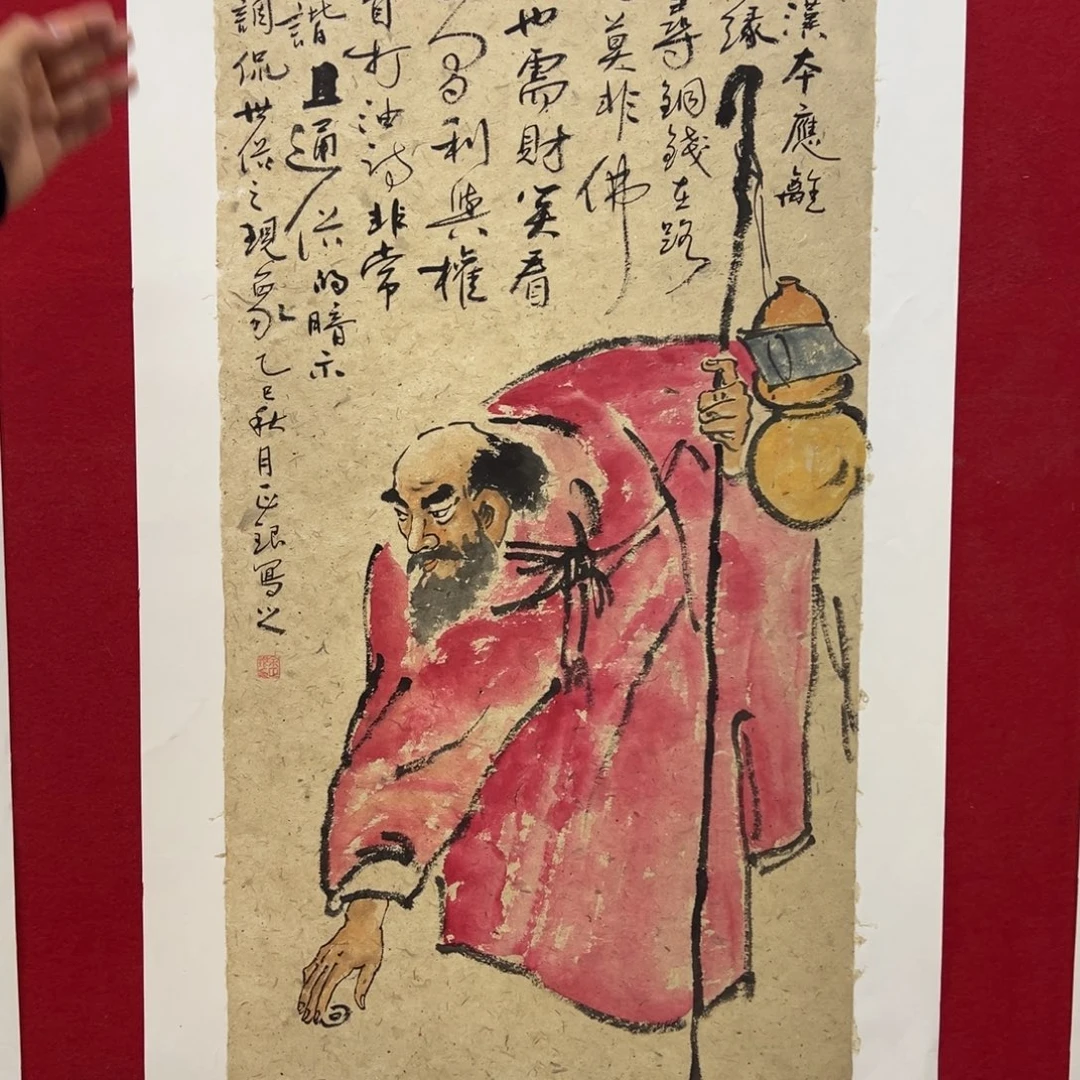 漢本應離
緣
尋銅錢在路
莫非佛
也需財笑看
名利與權
打油詩非常
諧且通俗的暗示
調侃世俗之現象乙巳秋月正琅寫之